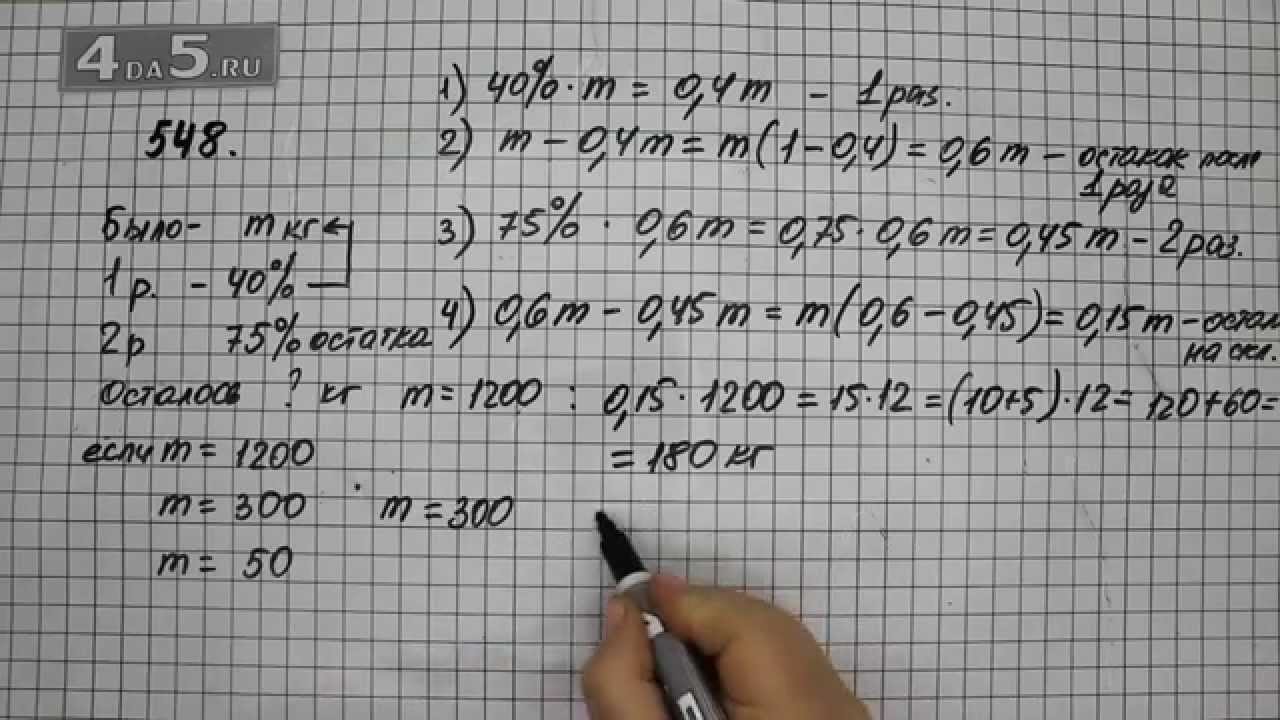 4DA5.RU
548.
Было- m кг
1р. - 40%
2р 75% остатка
Осталось ? кг
если m = 1200
m = 300
m = 50
1) 40% · m = 0,4m - 1 раз.
2) m - 0,4m = m(1-0,4) = 0,6m - остаток после
1 раза
3) 75% · 0,6m = 0,75 · 0,6m = 0,45m - 2 раз.
4) 0,6m - 0,45m = m(0,6-0,45) = 0,15m - остал
на скл.
m = 1200 : 0,15 · 1200 = 15 · 12 = (10+5) · 12 = 120+60=
= 180 кг
m = 300